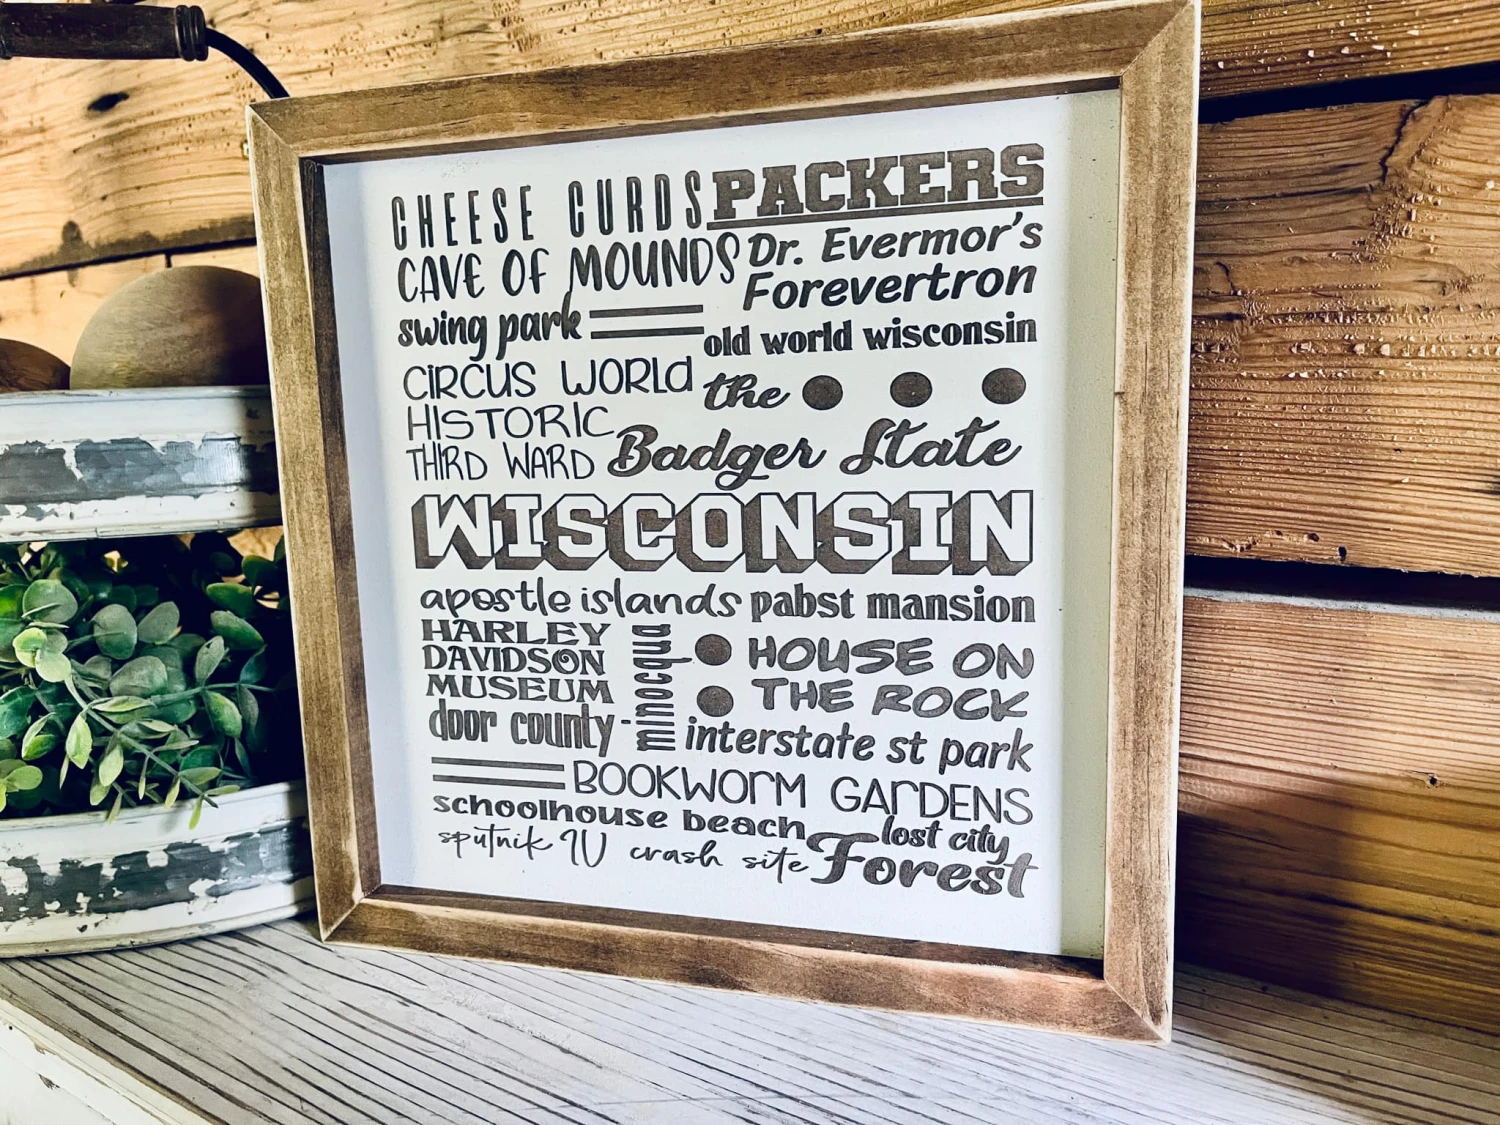 CHEESE CURDS PACKERS
CAVE OF MOUNDS
Dr. Evermor's
Forevertron
swing park
old world wisconsin
CIRCUS WORLD
the
HISTORIC
THIRD WARD
Badger State
WISCONSIN
apostle islands pabst mansion
HARLEY
DAVIDSON
MUSEUM
minocqua
HOUSE ON
THE ROCK
door county
interstate st park
BOOKWORM GARDENS
schoolhouse beach
lost city
Forest
sputnik IV crash site